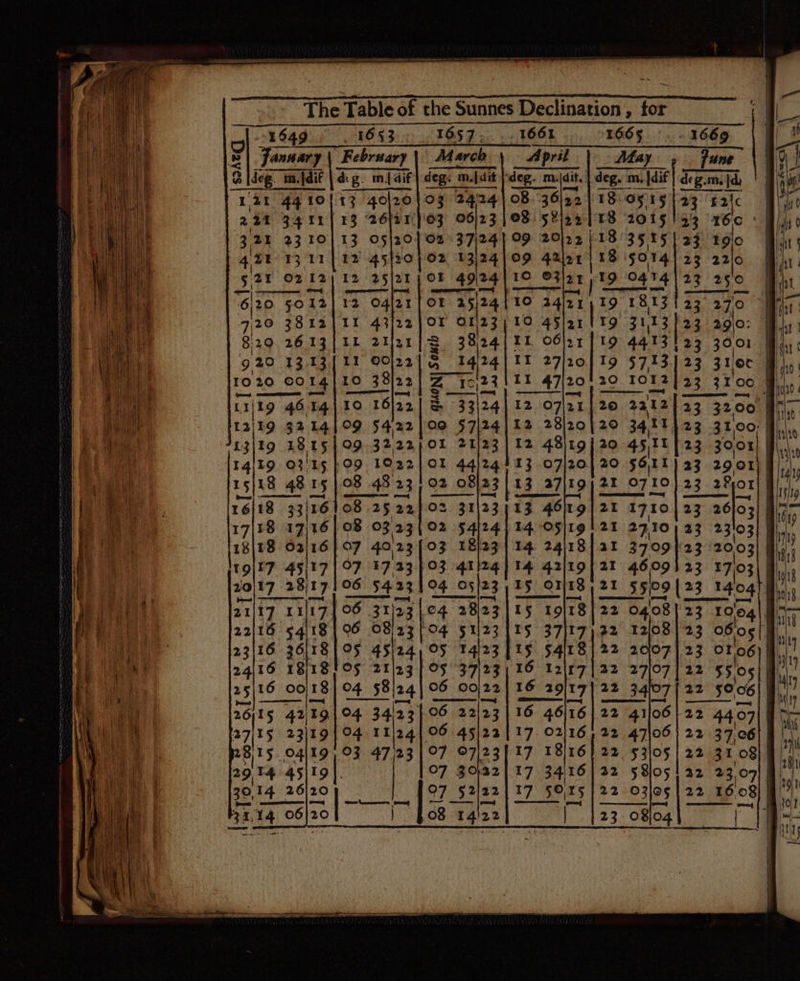 The Table of the Sunnes Declination, for
1649 1653 1657 1661 1665 1669
Dayes January February March April May June
deg. m. dif deg. m. dif deg. m. dif deg. m. dif. deg. m. dif deg. m. d
1 21 44 10 13 40 20 03 24 24 08 36 22 18 05 15 23 12
2 21 34 11 13 26 21 03 06 23 08 58 22 18 20 15 23 16
3 21 23 10 13 05 20 02 37 24 09 20 22 18 35 15 23 19 0
4 21 13 11 12 45 20 02 13 24 09 42 21 18 50 14 23 22 0
5 21 02 12 12 25 21 01 49 24 10 03 21 19 04 14 23 25 0
6 20 50 12 12 04 21 01 25 24 10 24 21 19 18 13 23 27 0
7 20 38 12 11 43 22 01 01 23 10 45 21 19 31 13 23 29 0
8 20 26 13 11 21 21 South 38 24 11 06 21 19 44 13 23 30 01
9 20 13 13 11 00 22 14 24 11 27 20 19 57 13 23 31 00
10 20 00 14 10 38 22 North 10 23 11 47 20 20 10 12 23 31 00
11 19 46 14 10 16 22 33 24 12 07 21 20 22 12 23 32 00
12 19 32 14 09 54 22 00 57 24 12 28 20 20 34 11 23 31 00
13 19 18 15 09 32 22 01 21 23 12 48 19 20 45 11 23 30 01
14 19 03 15 09 10 22 01 44 24 13 07 20 20 56 11 23 29 01
15 18 48 15 08 48 23 02 08 23 13 27 19 21 07 10 23 28 01
16 18 33 16 08 25 22 02 31 23 13 46 19 21 17 10 23 26 03
17 18 17 16 08 03 23 02 54 24 14 05 19 21 27 10 23 23 03
18 18 02 16 07 40 23 03 18 23 14 24 18 21 37 09 23 20 03
19 17 45 17 07 17 23 03 41 24 14 42 19 21 46 09 23 17 03
20 17 28 17 06 54 23 04 05 23 15 01 18 21 55 09 23 14 04
21 17 11 17 06 31 23 04 28 23 15 19 18 22 04 08 23 10 04
22 16 54 18 06 08 23 04 51 23 15 37 17 22 12 08 23 06 05
23 16 36 18 05 45 24 05 14 23 15 54 18 22 20 07 23 01 06
24 16 18 18 05 21 23 05 37 23 16 12 17 22 27 07 22 55 05
25 16 00 18 04 58 24 06 00 22 16 29 17 22 34 07 22 50 06
26 15 42 19 04 34 23 06 22 23 16 46 16 22 41 06 22 44 07
27 15 23 19 04 11 24 06 45 22 17 02 16 22 47 06 22 37 06
28 15 04 19 03 47 23 07 07 23 17 18 16 22 53 05 22 31 08
29 14 45 19 07 30 22 17 34 16 22 58 05 22 23 07
30 14 26 20 07 52 22 17 50 15 22 03 05 22 16 08
31 14 06 20 08 14 22 23 08 04